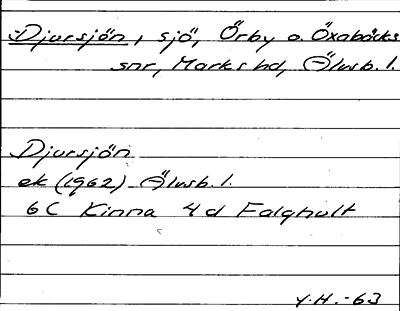 Djursjön, sjö, Örby o. Öxabäcks
snr, Marks hd, Älvsb. l.
Djursjön
ek (1962) Älvsb. l.
6 C Kinna 4 d Falghult
Y.H. -63